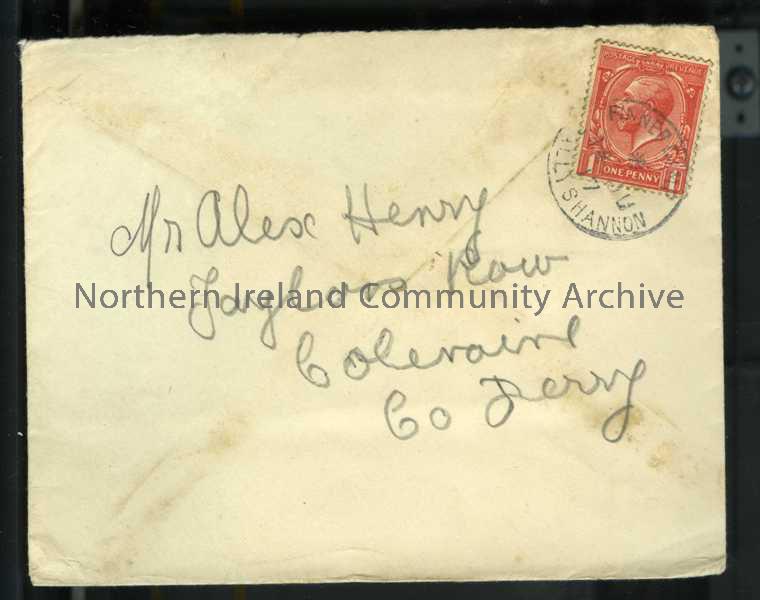 POSTAGE REVENUE
1 ONE PENNY 1
SHANNON
Mr Alex Henry
Row
Northern Ireland Community Archive
Coleraine
Co Derry